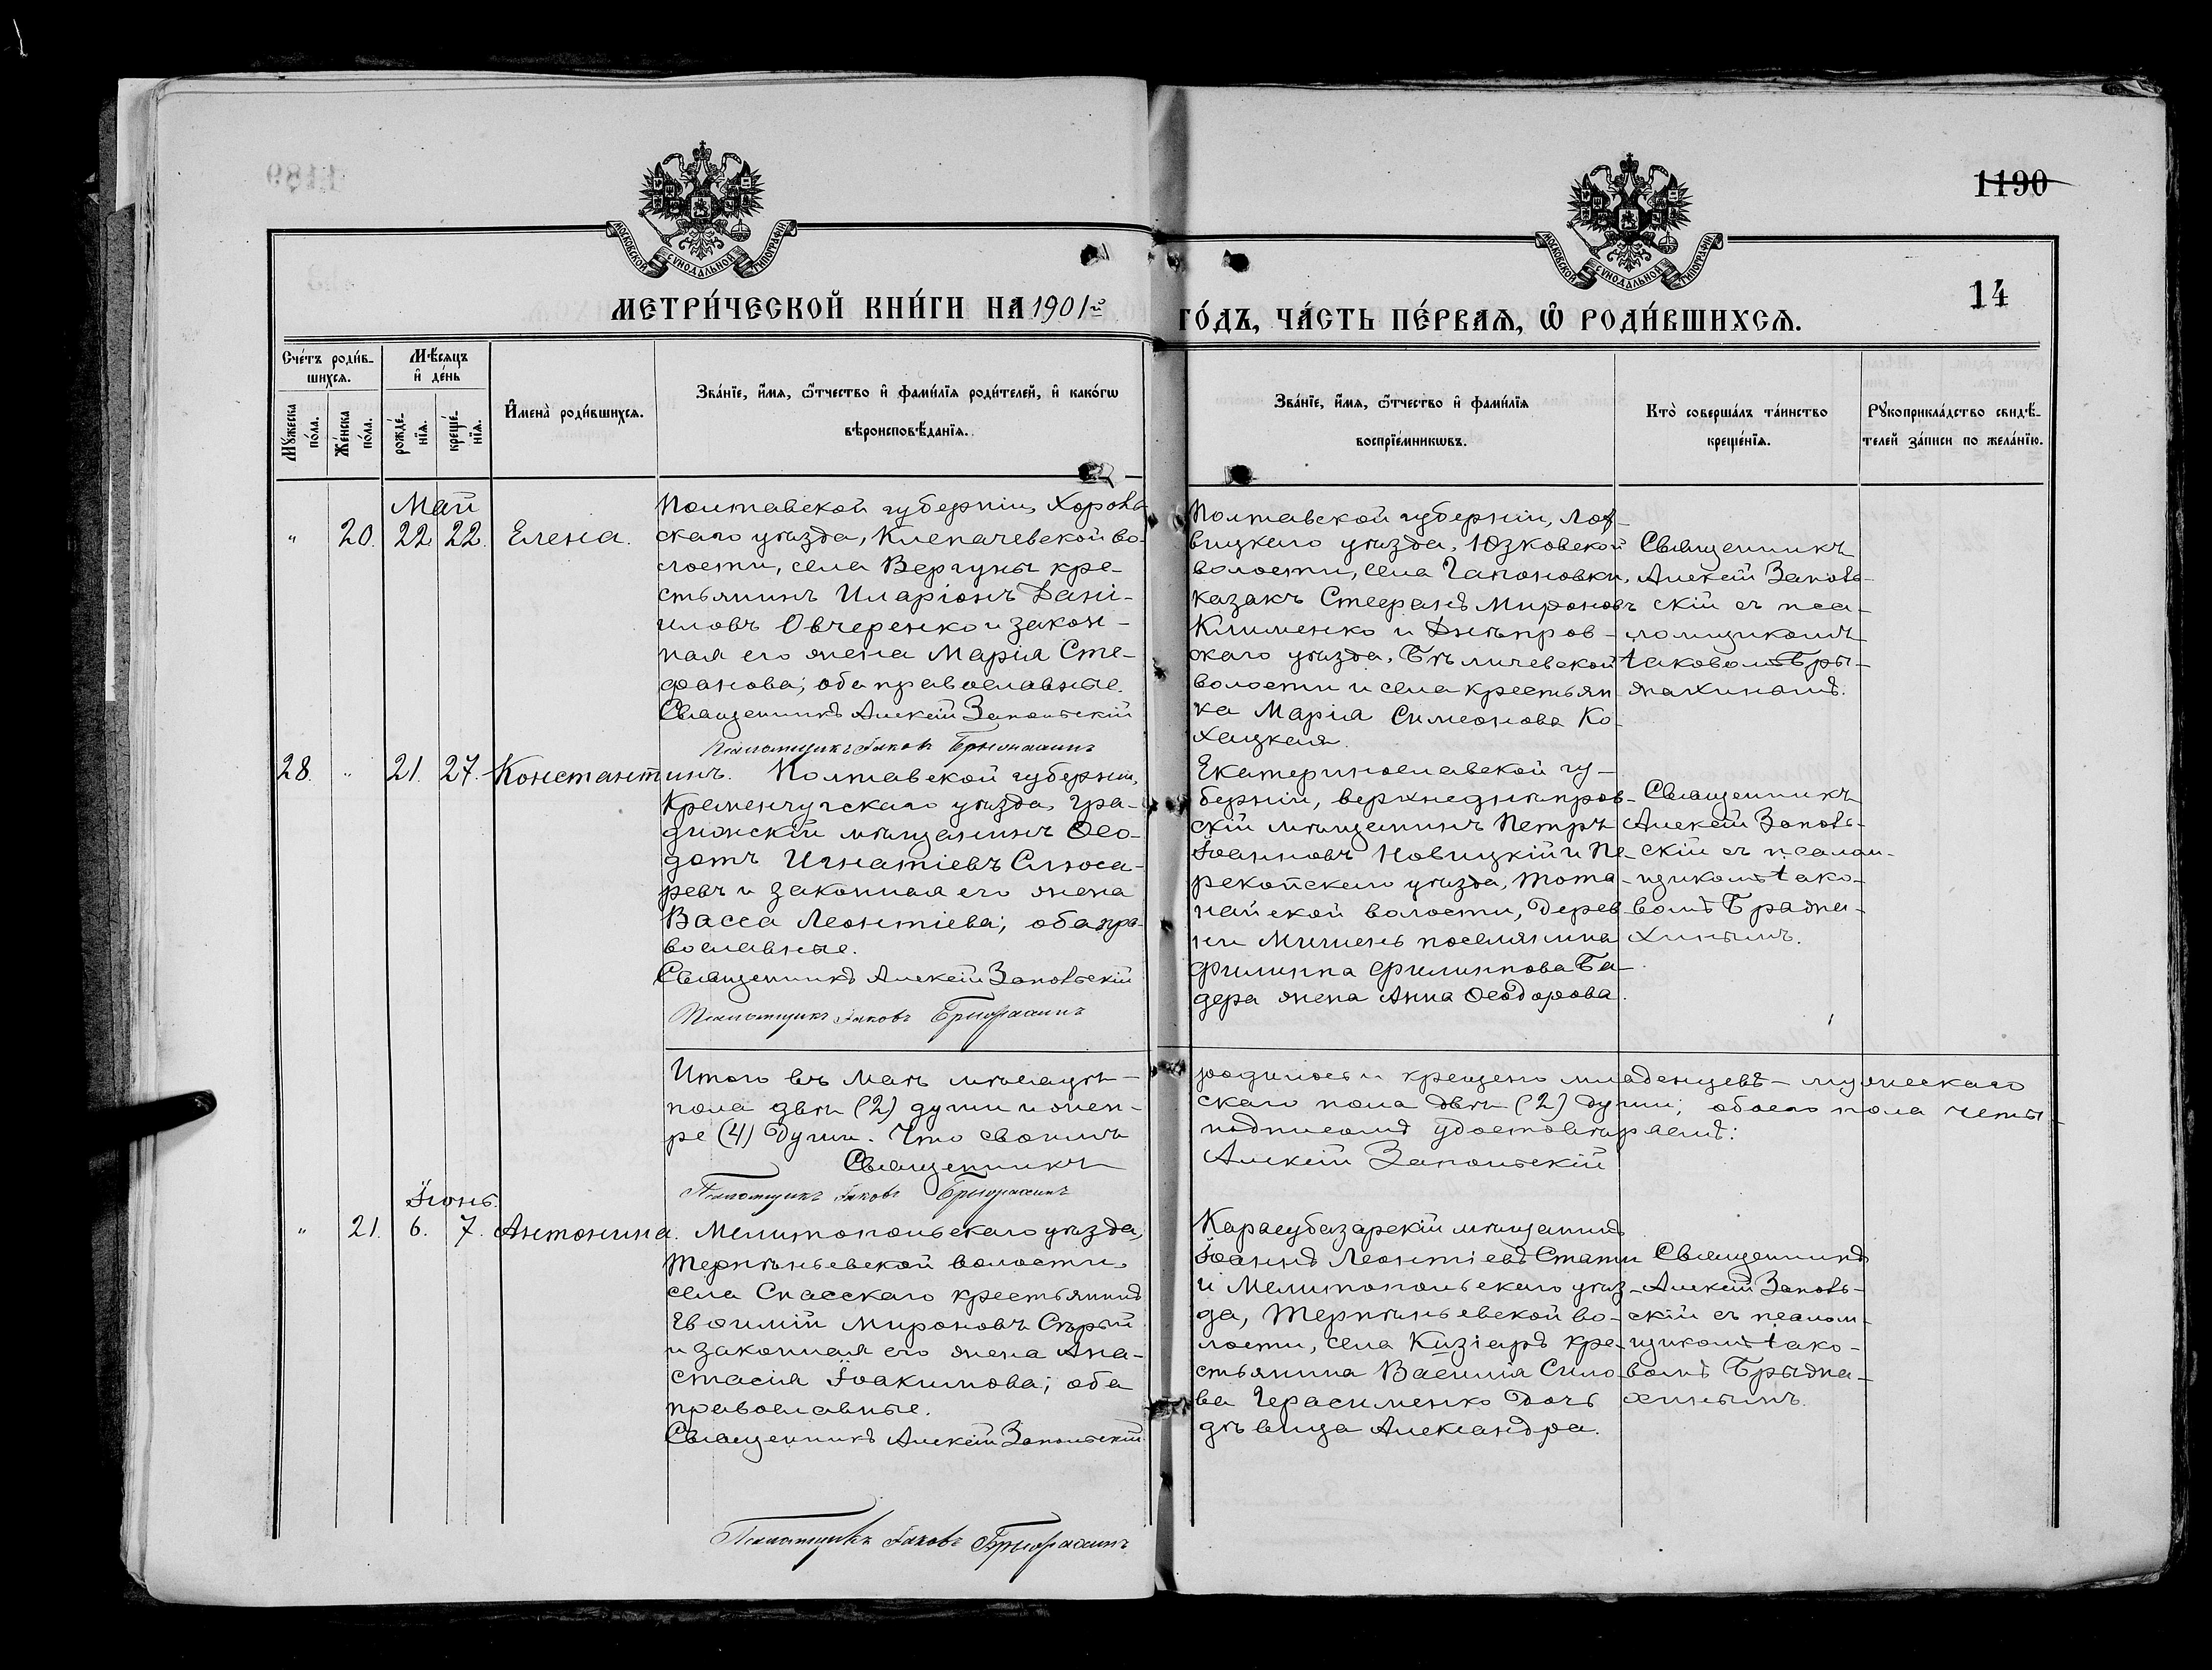 1190
14
МОСКОВСКОЙ СУНОДАЛЬНОЙ ТИПОГРАФІИ
МОСКОВСКОЙ СУНОДАЛЬНОЙ ТИПОГРАФІИ
МЕТРИ́ЧЕСКОЙ КНИ́ГИ НА 1901й ГО́ДЪ, ЧА́СТЬ ПЕ́РВАѦ, Ѡ РОДИ́ВШИХСѦ.
Сче́тъ роди́в-
шихсѧ.
Мѣ́сѧцъ
и҆ де́нь
Мꙋ́жеска
по́ла.
Же́нска
по́ла.
рожде́-
нїѧ.
креще́-
нїѧ.
И҆мена̀ роди́вшихсѧ.
Зва́нїе, и҆́мѧ, ѻ҆́тчество и҆ фами́лїѧ роди́телей, и҆ како́гѡ
вѣроисповѣ́данїѧ.
Зва́нїе, и҆́мѧ, ѻ҆́тчество и҆ фами́лїѧ
воспрїе́мникѡвъ.
Кто̀ соверша́лъ та́инство
креще́нїѧ.
Рꙋкоприкла́дство свидѣ́-
телей за́писи по жела́нїю.
Май
" 20. 22. 22. Елена.
Полтавской губерніи, Хороль-
скаго уѣзда, Клепачевской во-
лости, села Вергуны кре-
стьянинъ Иларіонъ Дані-
иловъ Овчеренко и закон-
ная его жена Марія Сте-
фанова; оба православные.
Священникъ Алексій Запольскій
Псаломщикъ Іаковъ
Полтавской губерніи, Лох-
вицкаго уѣзда, Юзковской
волости, села Гапоновки,
казакъ Стефанъ Мироновъ
Клименко и Днѣпров-
скаго уѣзда, Бѣличевской
волости и села крестьян
ка Марія Симеонова Ко-
хацкая.
Священникъ
Алексій Заполь-
скій съ пса-
ломщикомъ
Іаковомъ Бры-
жахинымъ.
28. " 21. 27. Константинъ.
Полтавской губерніи,
Кременчугскаго уѣзда, Гра-
дижскій мѣщанинъ Ѳео-
дотъ Игнатіевъ Слюса-
ревъ и законная его жена
Васса Леонтіева; оба пра-
вославные.
Священникъ Алексій Запольскій
Псаломщикъ Іаковъ
Екатеринославской гу-
берніи, верхнеднѣпров-
скій мѣщанинъ Петръ
Іоанновъ Новицкій и Пе-
рекопскаго уѣзда,
волости, дерев-
ни поселянина
Филиппа Филиппова Ба-
дера жена Анна Ѳеодорова.
Священникъ
Алексій Заполь-
скій съ псалом-
щикомъ Іако-
вомъ
хинымъ.
Итого въ Маѣ мѣсяцѣ родилось и крещено младенцевъ - мужескаго
пола двѣ (2) души и жен-скаго пола двѣ (2) души; обоего пола четы
ре (4) души. Что своимъ подписомъ удостовѣряемъ:
Священникъ Алексій Запольскій
Псаломщикъ Іаковъ
Іюнь.
" 21. 6. 7. Антонина.
Мелитопольскаго уѣзда,
Терпѣньевской волости,
села Спасскаго крестьянинъ
Евѳимій Мироновъ Сѣрый
и законная его жена Ана-
стасія Іоакимова; оба
православные.
Священникъ Алексій Запольскій
Псаломщикъ Іаковъ
Карасубазарскій мѣщанинъ
Іоаннъ Леонтіевъ
и Мелитопольскаго уѣз-
да, Терпѣньевской во-
лости, села Кизіяръ кре-
стьянина Василія Сило-
ва Герасименко дочь
дѣвица Александра.
Священникъ
Алексій Заполь-
скій съ псалом-
щикомъ Іако-
вомъ Брыжа-
хинымъ.